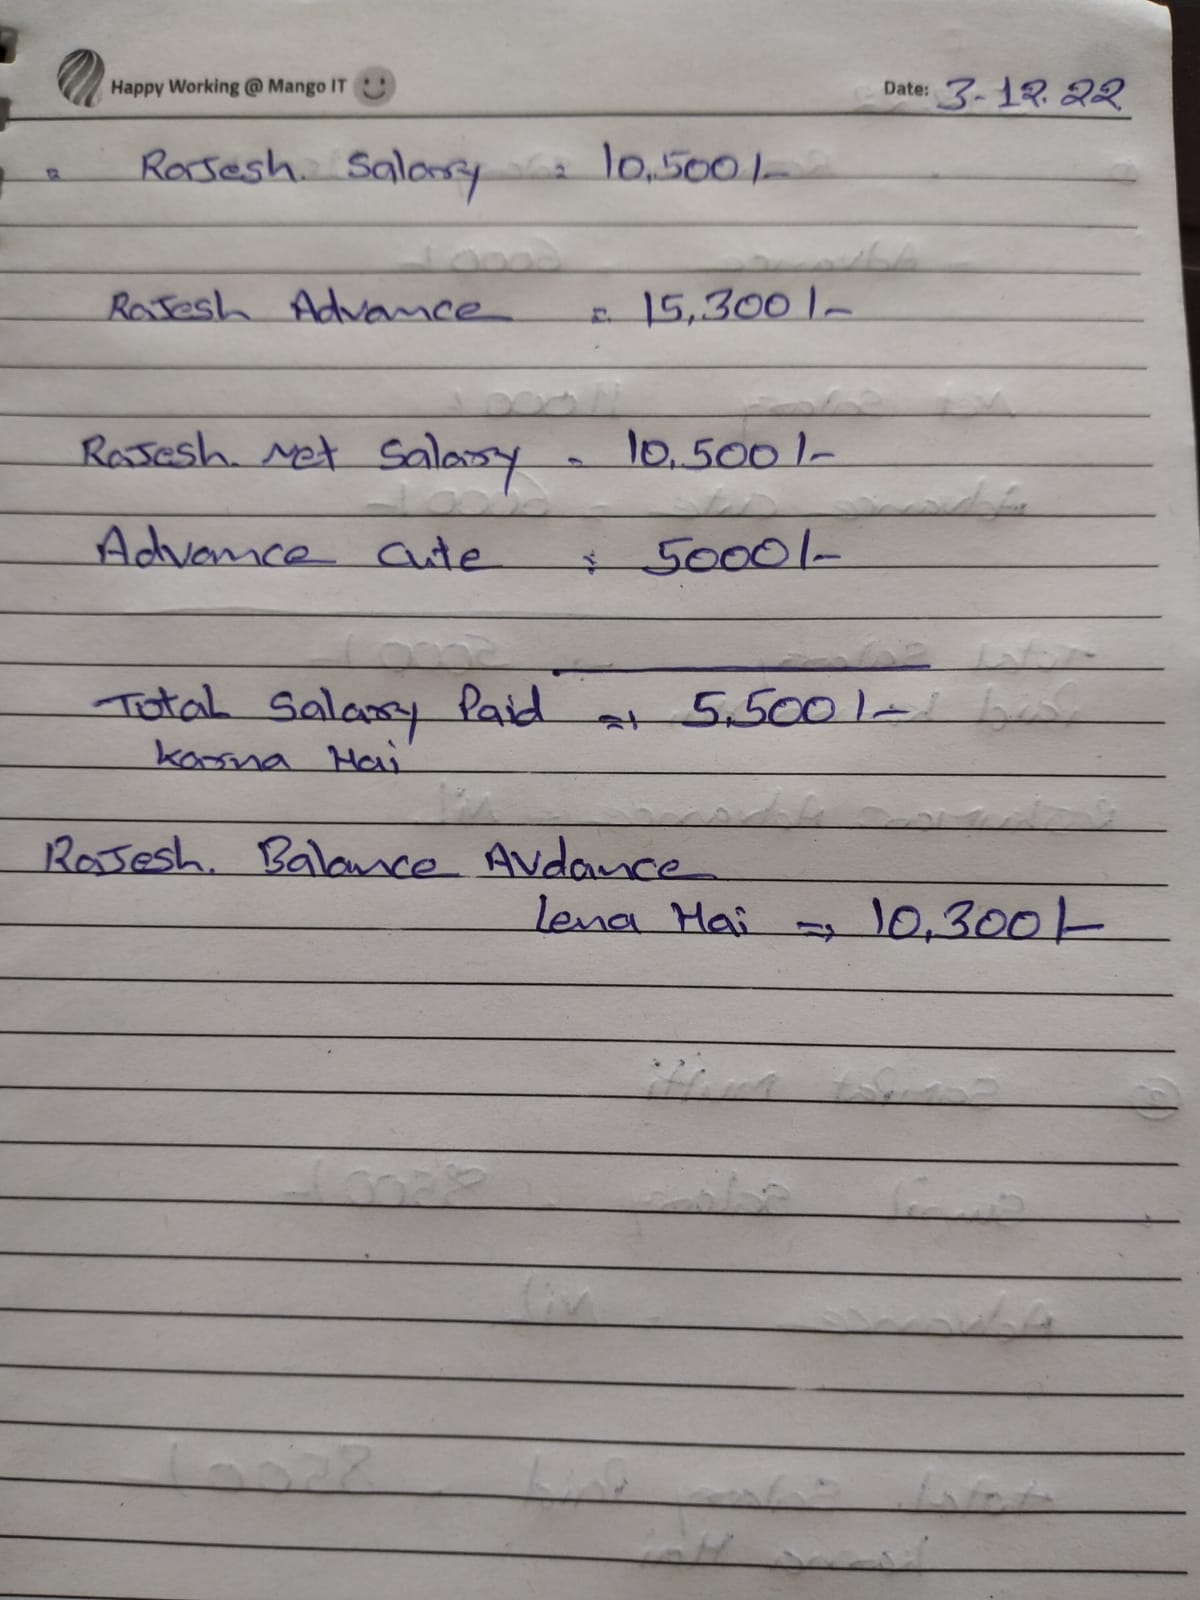 Happy Working @ Mango IT
Date: 3-12.22
Rajesh. Salary = 10,500/-
Rajesh Advance = 15,300/-
Rajesh. Net Salary - 10,500/-
Advance Cute : 5000/-
Total Salary Paid => 5,500/-
Karna Hai
Rajesh. Balance Avdance
Lena Hai => 10,300/-